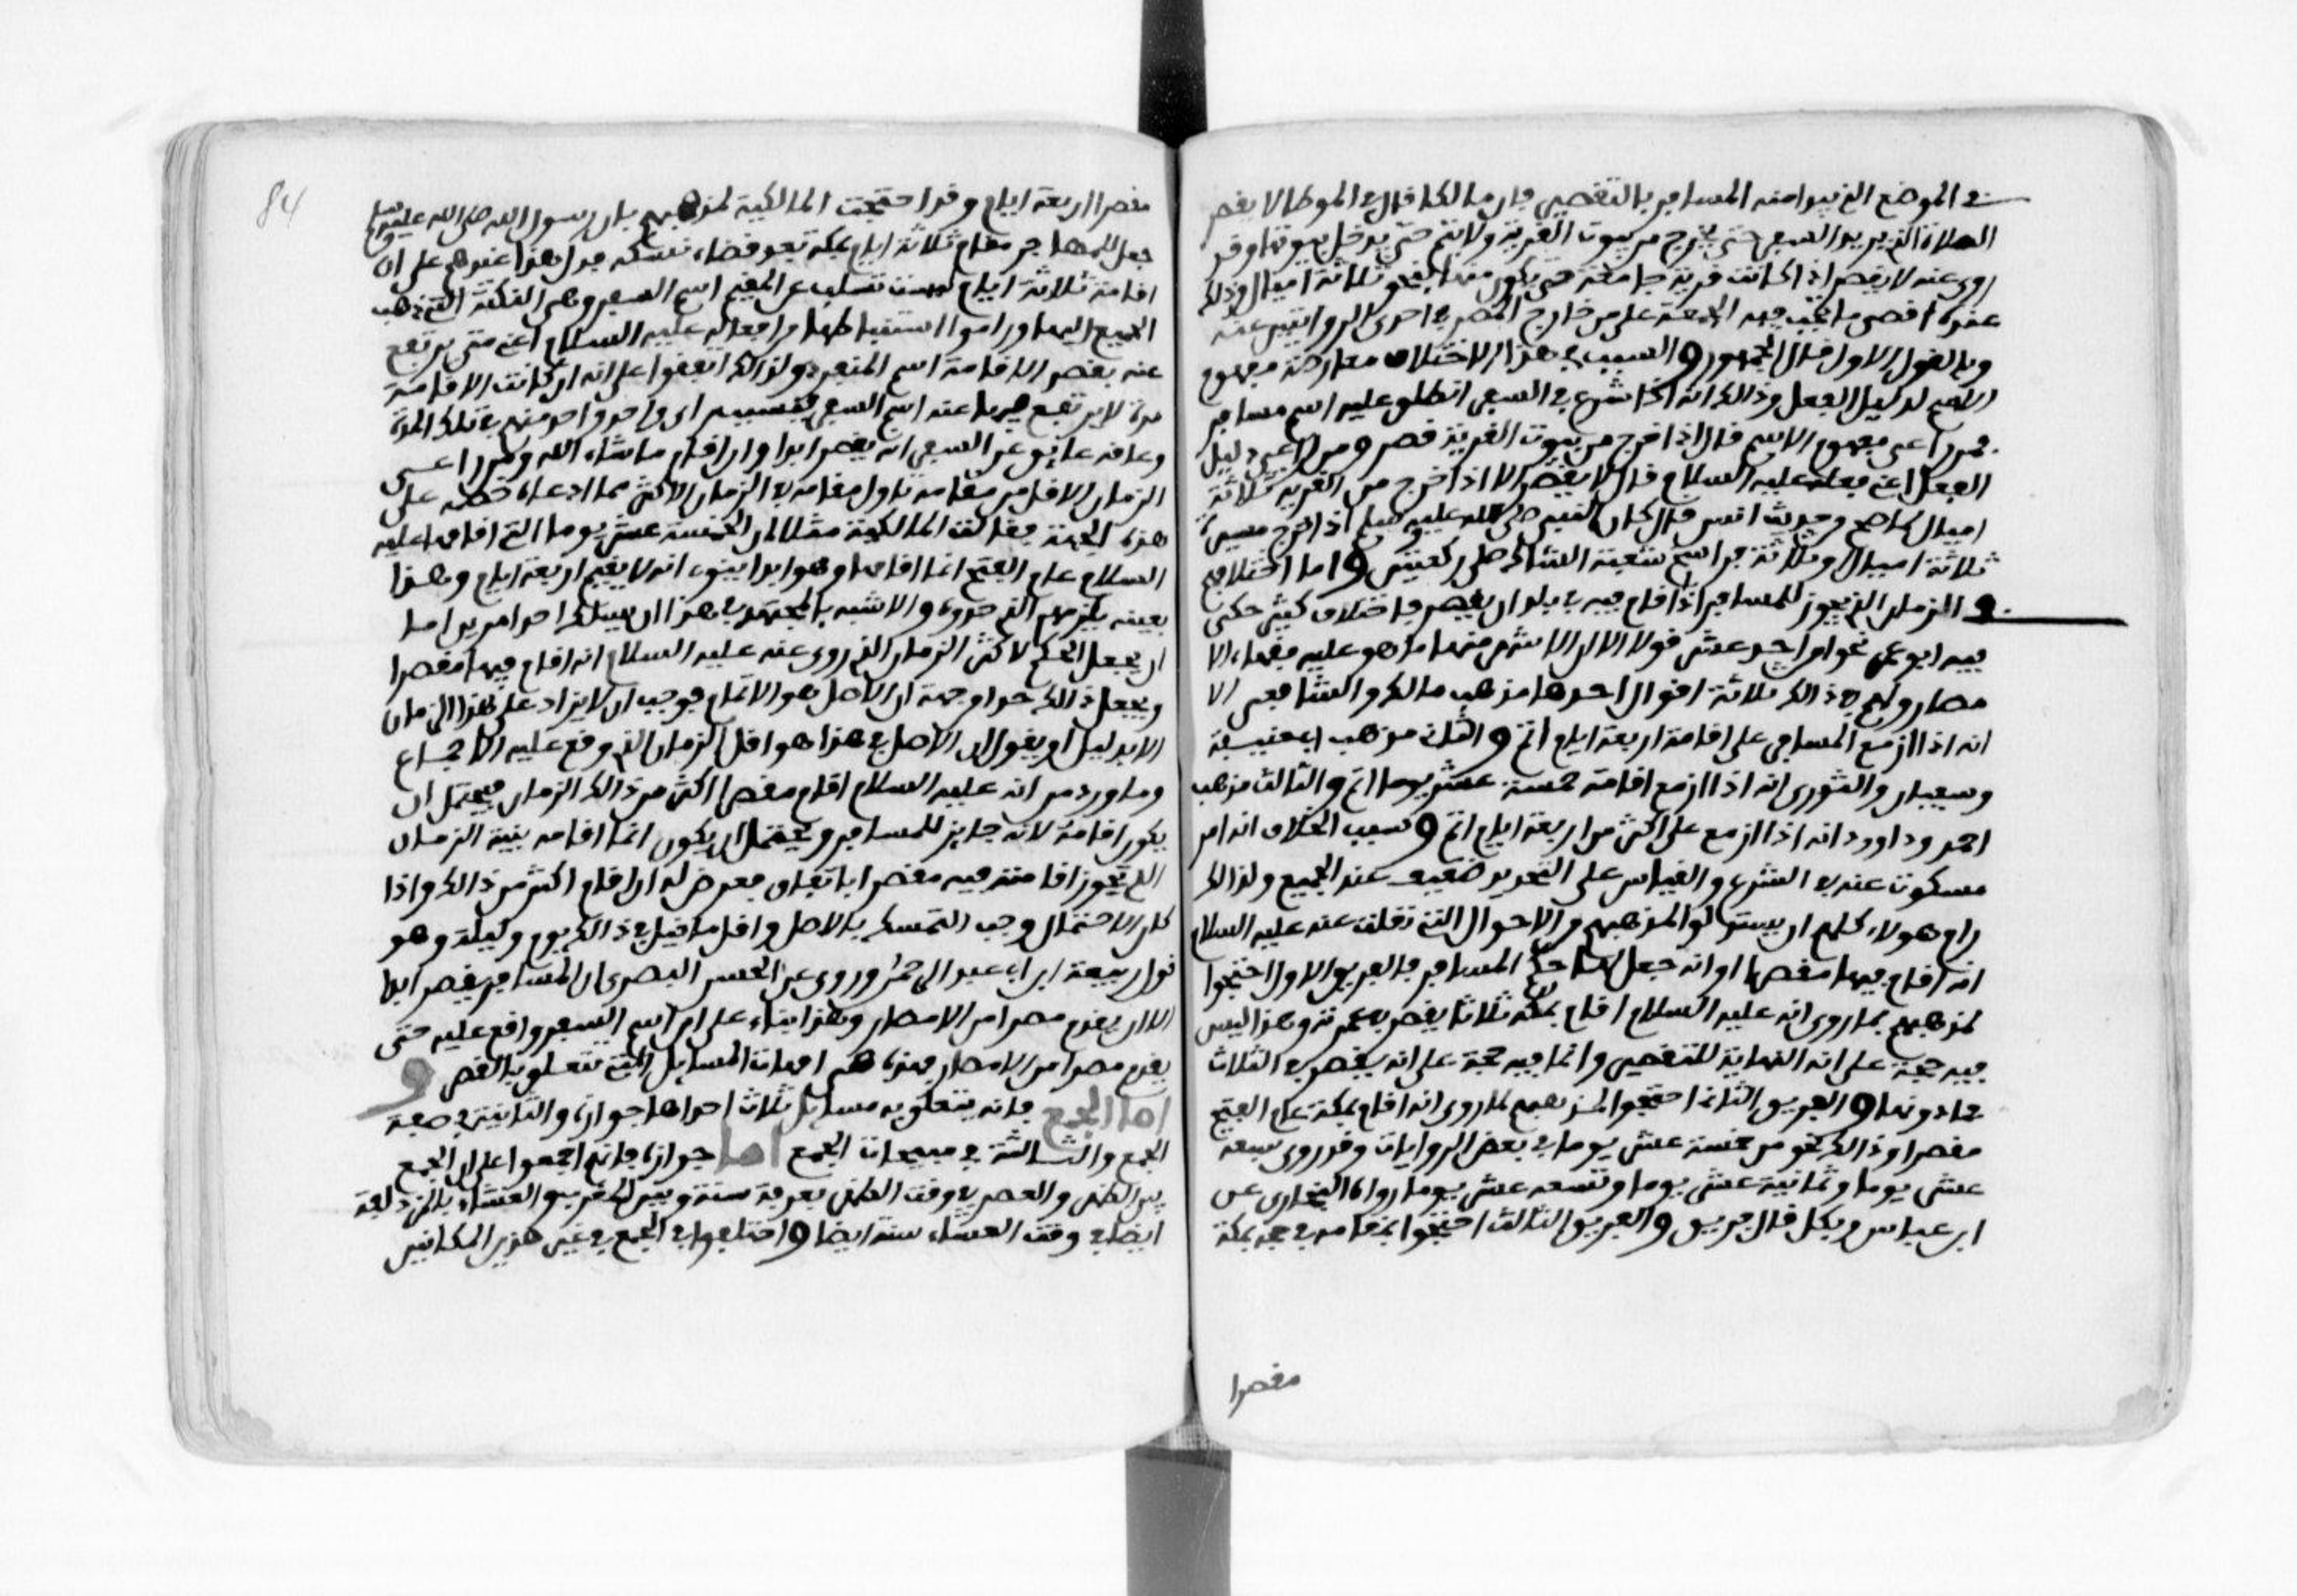 في الموضع الذي يبدا منه المسافر بالتقصير فان مالكا قال في الموطا لا يقصر
الصلاة الذي يريد السفر حتى يخرج من بيوت القرية ولا يتم حتى يدخل بيوتها وقد
روي عنه لا يقصر اذا كانت قرية جامعة حتى يكون منها بنحو ثلاثة اميال وذلك
عنده اقصى ما تجب فيه الجمعة على من خارج المصر في احدى الروايتين عنه
وبالقول الاول قال الجمهور والسبب في هذا الاختلاف معارضة مفهوم
الاسم لدليل الفعل وذالك انه اذا شرع في السفر انطلق عليه اسم مسافر
فمن راعى مفهوم الاسم قال اذا خرج من بيوت القرية قصر ومن راعى دليل
الفعل اعني فعله عليه السلام قال لا يقصر الا اذا خرج من القرية بثلاثة
اميال لما صح من حديث انس قال كان النبي صلى الله عليه وسلم اذا خرج مسيرة
ثلاثة اميال او ثلاثة فراسخ شعبة الشاك صلى ركعتين واما اختلافهم
في الزمان الذي يجوز للمسافر اذا اقام فيه في بلد ان يقصر فاختلاف كثير حكى
فيه ابو عمر نحوا من احد عشر قولا الا ان الاشهر منها ما هو عليه فقهاء الا
مصار ولهم في ذالك ثلاثة اقوال احدها مذهب مالك والشافعي الا
انه اذا ازمع المسافر على اقامة اربعة ايام اتم والثاني مذهب ابي حنيفة
وسفيان والثوري انه اذا ازمع اقامة خمسة عشر يوما اتم والثالث مذهب
احمد وداوود انه اذا ازمع على اكثر من اربعة ايام اتم وسبب الخلاف انه امر
مسكوت عنه في الشرع والقياس على التحديد ضعيف عند الجميع ولذالك
رام هولاء كلهم ان يستدلوا لمذهبهم من الاحوال التي نقلت عنه عليه السلام
انه اقام فيها مقصرا او انه جعل لها حكم المسافر فالفريق الاول احتجوا
لمذهبهم بما روي انه عليه السلام اقام بمكة ثلاثا يقصر في عمرته وهذا ليس
فيه حجة على انه النهاية للتقصير وانما فيه حجة على انه يقصر في الثلاث
فما دونها والفريق الثاني احتجوا لمذهبهم لما روي انه اقام بمكة عام الفتح
مقصرا وذالك نحو من خمسة عشر يوما في بعض الروايات وقد روي سبعة
عشر يوما وثمانية عشر يوما وتسعه عشر يوما رواه البخاري عن
ابن عباس وبكل قال فريق والفريق الثالث احتجوا بمقامه في حجه بمكة
مقصرا
84
مقصرا اربعة ايام وقد احتجت المالكية لمذهبهم بان رسول الله صلى الله عليه وسلم
جعل للمهاجر مقام ثلاثة ايام بمكة بعد قضاء نسكه فدل هذا عندهم على ان
اقامة ثلاثة ايام ليست تسلب عن المقيم اسم السفر وهي النكتة التي ذهب
الجميع اليها وراموا استنباطها من فعله عليه السلام اعني متى يرتفع
عنه بقصر الاقامة اسم السفر ولذالك اتفقوا على انه ان كانت الاقامة
مدة لا يرتفع فيها عنه اسم السفر بحسب راي واحد واحد منهم في تلك المدة
وعاقه عايق عن السفر انه يقصر ابدا وان اقام ما شاء الله ومن راعى
الزمان الاقل من مقامه تاول مقامه في الزمان الاكثر مما ادعاه خصمه على
هذه الجهة فقالت المالكية مثلا ان الخمسة عشر يوما التي اقامها عليه
السلام عام الفتح انما اقامها وهو ابدا ينوي انه لا يقيم اربعة ايام وهذا
بعينه يلزمهم الذي حدوه والاشبه بالمجتهد في هذا ان يسلك احد امرين اما
ان يجعل الحكم لاكثر الزمان الذي روي عنه عليه السلام انه اقام فيها مقصرا
ويجعل ذالك حدا من جهة ان الاصل هو الاتمام فوجب ان لا يزاد على هذا الزمان
الا بدليل او يقول ان الاصل في هذا هو اقل الزمان الذي وقع عليه الاجماع
وما ورد من انه عليه السلام اقام مقصرا اكثر من ذالك الزمان فيحتمل ان
يكون اقامه لانه جايز للمسافر ويحتمل ان يكون انما اقامه بنية الزمان
الذي تجوز اقامته فيه مقصرا باتفاق فعرض له ان اقام اكثر من ذالك واذا
كان الاحتمال وجب التمسك بالاصل واقل ما قيل في ذالك يوم وليلة وهو
قول ربيعة ابن ابي عبد الرحمن وروي عن الحسن البصري ان المسافر يقصر ابدا
الا ان يقدم مصرا من الامصار وهذا بناء على ان اسم السفر واقع عليه حتى
يقدم مصرا من الامصار فهذه هي امهات المسايل التي تتعلق بالقصر و
اما الجمع فانه يتعلق به مسايل ثلاث احداها جوازه والثانية في صفة
الجمع والثالثة في مبيحات الجمع اما جوازه فانهم اجمعوا على ان الجمع
بين الظهر والعصر في وقت الظهر بعرفة سنة وبين المغرب والعشاء بالمزدلفة
ايضا في وقت العشاء سنة ايضا واختلفوا في الجمع في غير هذين المكانين